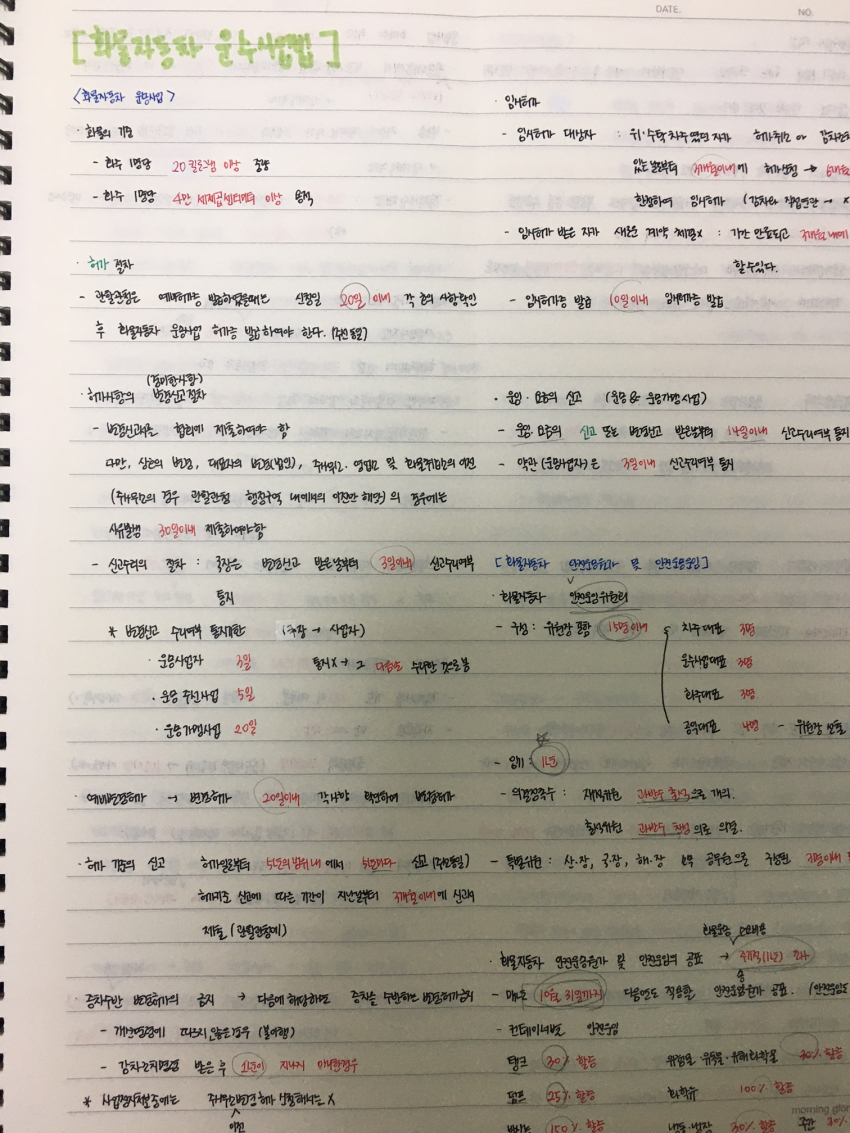 DATE.
NO.
[ 화물자동차 운수사업법 ]
<화물자동차 운송사업>
· 화물의 기준
- 화주 1명당 20킬로그램 이상 중량
- 화주 1명당 4만 세제곱센티미터 이상 용적
· 허가 절차
- 관할관청은 예비허가증 발급하였을때는 신청일 20일 이내 각 호의 사항 확인
후 화물자동차 운송사업 허가증 발급하여야 한다. (주선동일)
(경미한사항)
· 허가사항의 변경신고 절차
- 변경신고서를 협회에 제출하여야 함
다만, 상호의 변경, 대표자의 변경(법인), 주사무소·영업소 및 화물취급소의 이전
(주사무소의 경우 관할관청 행정구역 내에서의 이전만 해당)의 경우에는
사유발생 30일이내 제출하여야함
- 신고수리의 절차 : 국장은 변경신고 받은날부터 3일이내 신고수리여부
통지
* 변경신고 수리여부 통지기한 (국장 → 사업자)
· 운송사업자 3일 통지X → 그 다음날 수리한 것으로 봄
· 운송 주선사업 5일
· 운송가맹사업 20일
· 예비변경허가 → 변경허가 20일이내 각사항 확인하여 변경허가
· 허가 기준의 신고 허가일로부터 5년의 범위내에서 5년마다 신고 (주선동일)
허가기준 신고에 따른 기간이 지난날부터 3개월이내에 신고서
제출 (관할관청에)
· 증차수반 변경허가의 금지 → 다음에 해당하면 증차를 수반하는 변경허가금지
- 개선명령에 따르지 않은경우 (불이행)
- 감차조치명령 받은 후 1년이 지나지 아니한경우
* 사업정지처분중에는 주사무소변경 허가 신청해서는 X
이전
· 임시허가
- 임시허가 대상자 : 위·수탁차주였던 자가 허가취소 or 감차조치
있는 날로부터 3개월이내에 허가신청 → 6개월
한정하여 임시허가 (감차와 직접연관 → X
- 임시허가 받은 자가 새로운 계약 체결X : 기간 만료되고 3개월 내에
할 수있다.
- 임시허가증 발급 10일이내 임시허가증 발급
· 운임·요금의 신고 (운송 & 운송가맹사업)
- 운임·요금의 신고 또는 변경신고 받은날부터 14일이내 신고수리여부 통지
- 약관 (운송사업자)은 3일이내 신고수리여부 통지
[ 화물자동차 안전운송원가 및 안전운송운임 ]
· 화물자동차 안전운임위원회
- 구성 : 위원장 포함 15명이내
차주대표 3명
운수사업대표 3명
화주대표 3명
공익대표 4명 - 위원장 선출
- 임기 : 1년
- 의결정족수 : 재적위원 과반수 출석으로 개의.
출석위원 과반수 찬성 의로 의결.
- 특별위원 : 산·장, 국장, 해·장 소속 공무원으로 구성된 3명이내
· 화물자동차 안전운송원가 및 안전운임의 공표
- 매년 10월 31일까지 다음연도 적용할 안전운송원가 공표. (안전운임도
- 컨테이너별 안전운임
탱크 30% 할증
위험물·유독물·유해화학물 30% 할증
덤프 25% 할증
화약류 100% 할증
150% 할증
냉동·냉장 30% 할증
morning glory